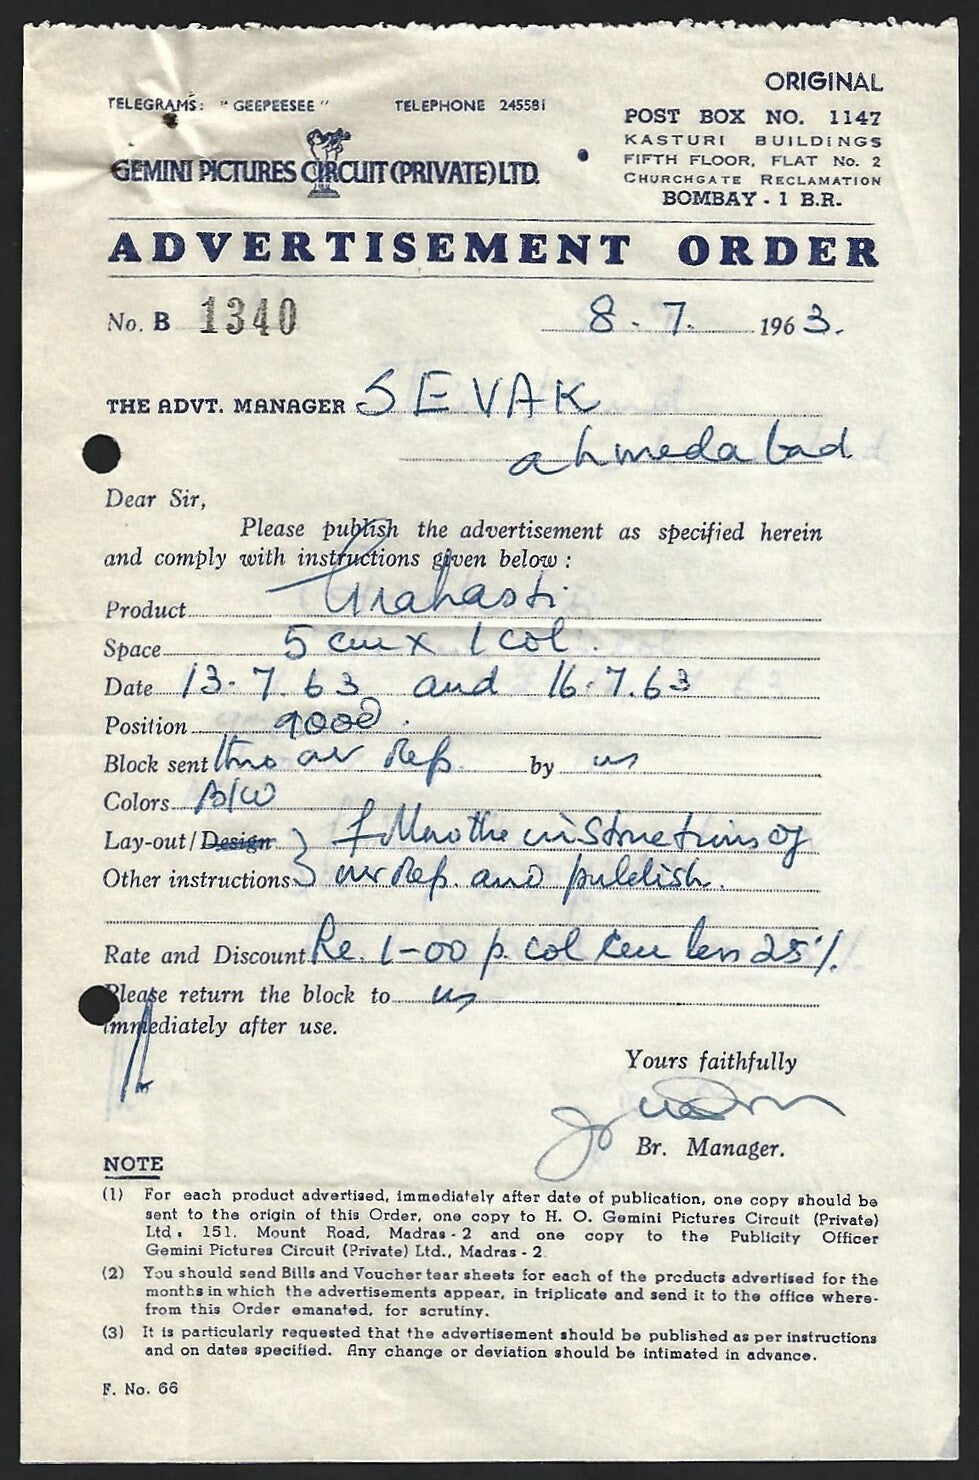 ORIGINAL
TELEGRAMS: "GEEPEESEE" TELEPHONE 245581
POST BOX NO. 1147
KASTURI BUILDINGS
FIFTH FLOOR, FLAT No. 2
CHURCHGATE RECLAMATION
BOMBAY - 1 B.R.
GEMINI PICTURES CIRCUIT (PRIVATE) LTD.
ADVERTISEMENT ORDER
No. B 1340 8. 7. 1963.
THE ADVT. MANAGER SEVAK
ahmedabad
Dear Sir,
Please publish the advertisement as specified herein
and comply with instructions given below :
Product Grahasti
Space 5 cm x 1 col.
Date 13.7.63 and 16.7.63
Position good.
Block sent thro our Rep. by us
Colors B/W
Lay-out/Design } follow the instructions of
Other instructions } our Rep. and publish.
Rate and Discount Re. 1-00 p. col cm less 25%.
Please return the block to us
immediately after use.
Yours faithfully
Br. Manager.
NOTE
(1) For each product advertised, immediately after date of publication, one copy should be
sent to the origin of this Order, one copy to H. O. Gemini Pictures Circuit (Private)
Ltd. 151, Mount Road, Madras - 2 and one copy to the Publicity Officer
Gemini Pictures Circuit (Private) Ltd., Madras - 2
(2) You should send Bills and Voucher tear sheets for each of the products advertised for the
months in which the advertisements appear, in triplicate and send it to the office where-
from this Order emanated, for scrutiny.
(3) It is particularly requested that the advertisement should be published as per instructions
and on dates specified. Any change or deviation should be intimated in advance.
F. No. 66